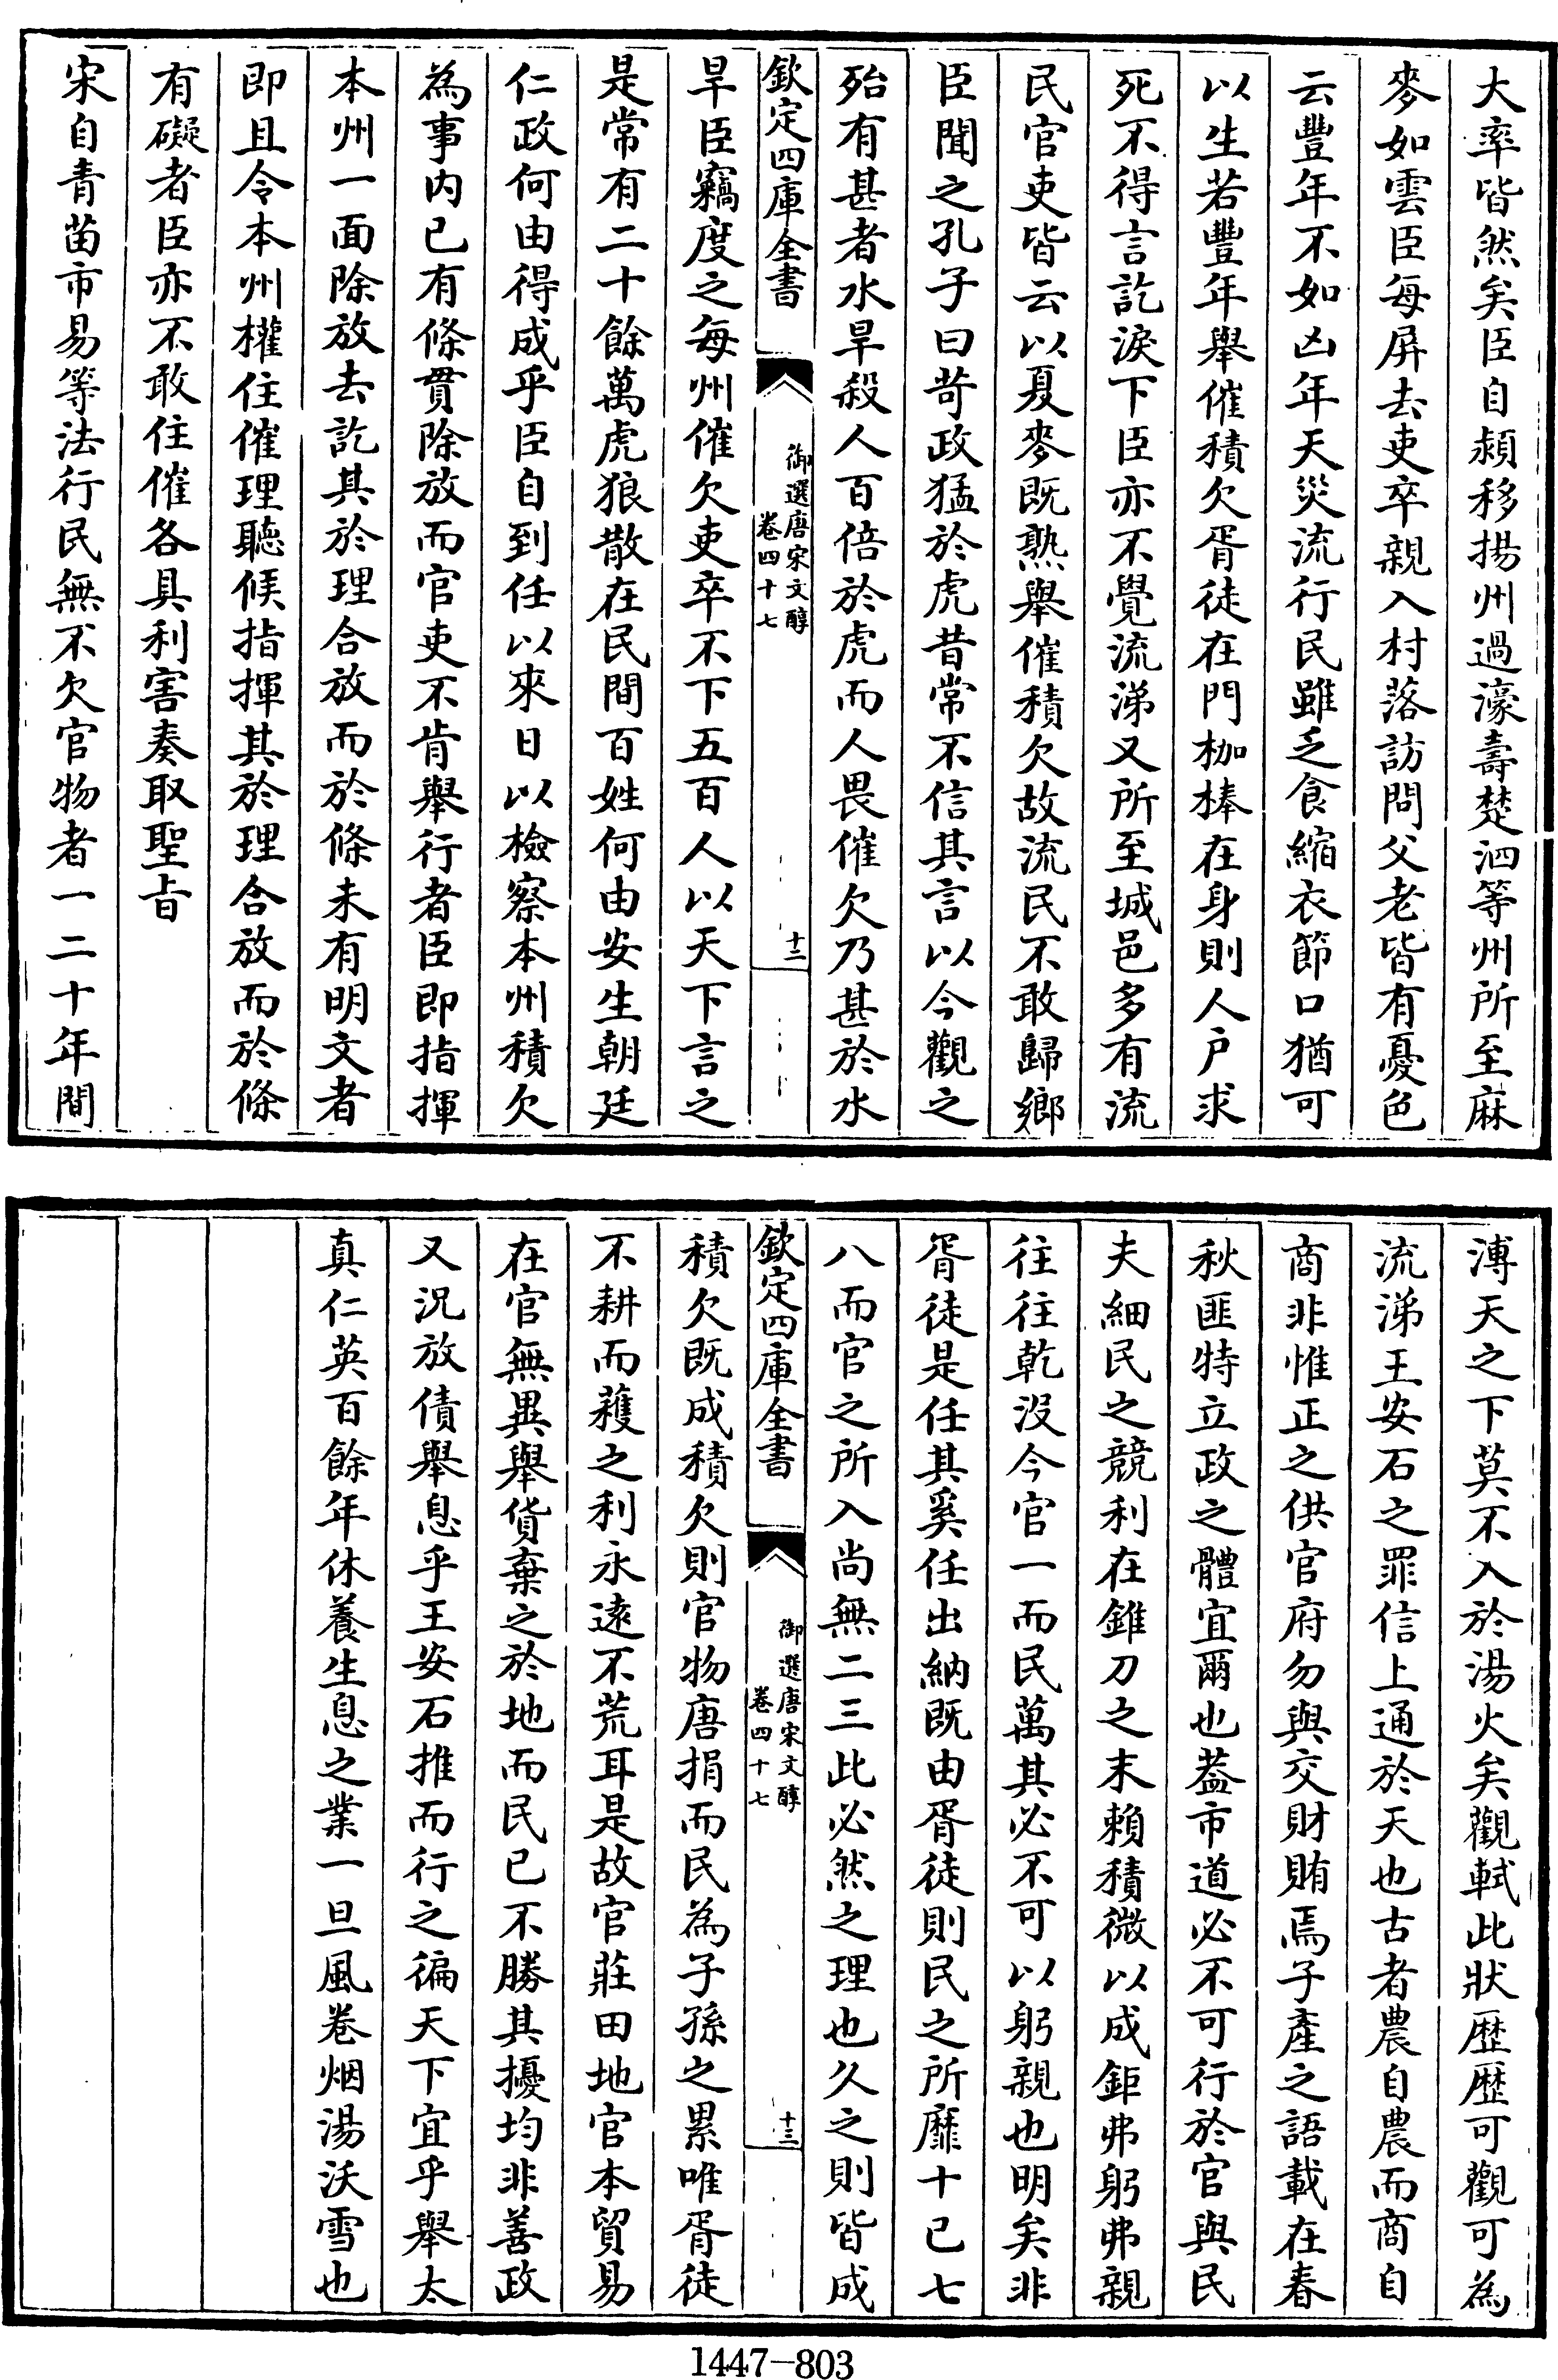 大率皆然矣臣自潁移揚州過濠壽楚泗等州所至麻
麥如雲臣每屏去吏卒親入村落訪問父老皆有憂色
云豐年不如凶年天災流行民雖乏食縮衣節口猶可
以生若豐年舉催積欠胥徒在門枷棒在身則人戶求
死不得言訖淚下臣亦不覺流涕又所至城邑多有流
民官吏皆云以夏麥既熟舉催積欠故流民不敢歸鄉
臣聞之孔子曰苛政猛於虎昔常不信其言以今觀之
殆有甚者水旱殺人百倍於虎而人畏催欠乃甚於水
欽定四庫全書
御選唐宋文醇
卷四十七
十二
旱臣竊度之每州催欠吏卒不下五百人以天下言之
是常有二十餘萬虎狼散在民間百姓何由安生朝廷
仁政何由得成乎臣自到任以來日以檢察本州積欠
為事内已有條貫除放而官吏不肯舉行者臣即指揮
本州一面除放去訖其於理合放而於條未有明文者
即且令本州權住催理聽候指揮其於理合放而於條
有礙者臣亦不敢住催各具利害奏取聖旨
宋自青苗市易等法行民無不欠官物者一二十年間
溥天之下莫不入於湯火矣觀軾此狀歴歴可觀可為
流涕王安石之罪信上通於天也古者農自農而商自
商非惟正之供官府勿與交財賄焉子產之語載在春
秋匪特立政之體宜爾也蓋市道必不可行於官與民
夫細民之競利在錐刀之末賴積微以成鉅弗躬弗親
往往乾沒今官一而民萬其必不可以躬親也明矣非
胥徒是任其奚任出納既由胥徒則民之所靡十已七
八而官之所入尚無二三此必然之理也久之則皆成
欽定四庫全書
御選唐宋文醇
卷四十七
十三
積欠既成積欠則官物唐捐而民為子孫之累唯胥徒
不耕而穫之利永遠不荒耳是故官莊田地官本貿易
在官無異舉貨棄之於地而民已不勝其擾均非善政
又況放債舉息乎王安石推而行之徧天下宜乎舉太
真仁英百餘年休養生息之業一旦風卷烟湯沃雪也
1447-803